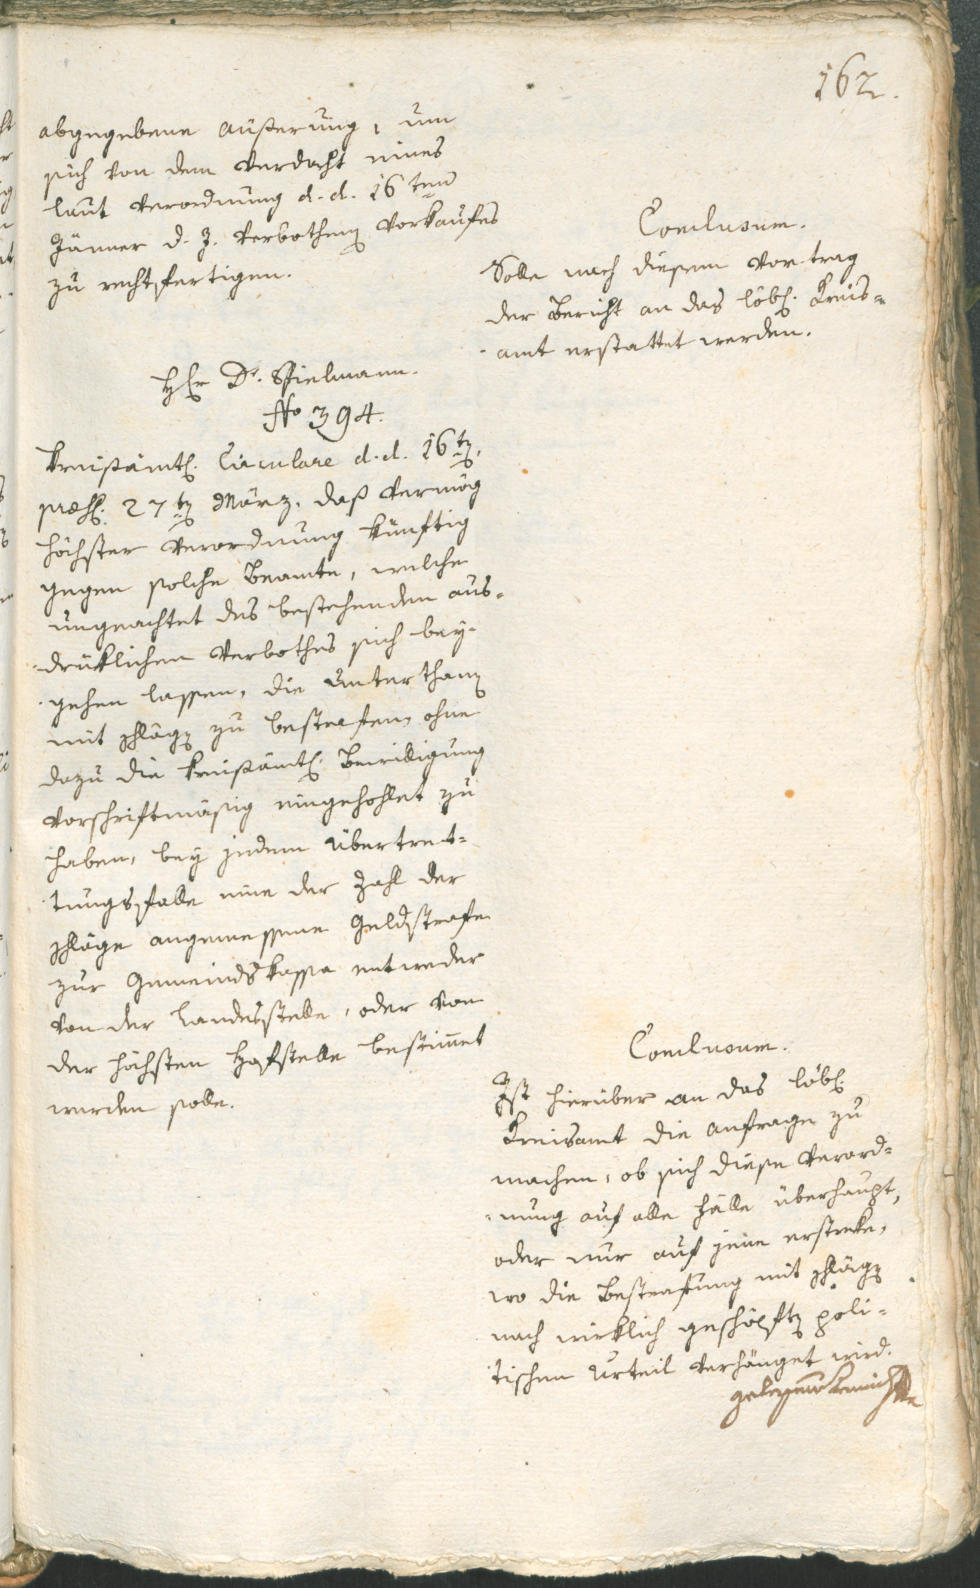 162.
abgegebene Äußerung, um
sich von dem Verdacht eines
laut Verordnung d. d. 16ten
Jänner d. J. verbothen Vorkaufes
zu rechtfertigen.
Conclusum.
Solle nach diesem Vortrag
der Bericht an das löbl. Kreis-
amt erstattet werden.
Hr Dr. Spielmann.
No 394.
Kreisämtl. Circulare d. d. 16ten,
præs. 27ten März, daß vermög
höchster Verordnung künftig
gegen solche Beamte, welche
ungeachtet des bestehenden aus-
drücklichen Verbothes sich bey-
gehen lassen, die Unterthanen
mit Schlägen zu bestrafen, ohne
dazu die kreisämtl. Bewilligung
vorschriftmäsig eingehohlet zu
haben, bey jedem Übertret-
tungsfalle eine der Zahl der
Schläge angemessene Geldstrafe
zur Gemeindskassa entweder
von der Landesstelle, oder von
der höchsten Hofstelle bestimmet
werden solle.
Conclusum.
Ist hierüber an das löbl.
Kreisamt die Anfrage zu
machen, ob sich diese Verord-
nung auf alle Fälle überhaupt,
oder nur auf jene erstrecke,
wo die Bestrafung mit Schlägen
nach wirklich geschöpften poli-
tischen Urteil verhänget wird.